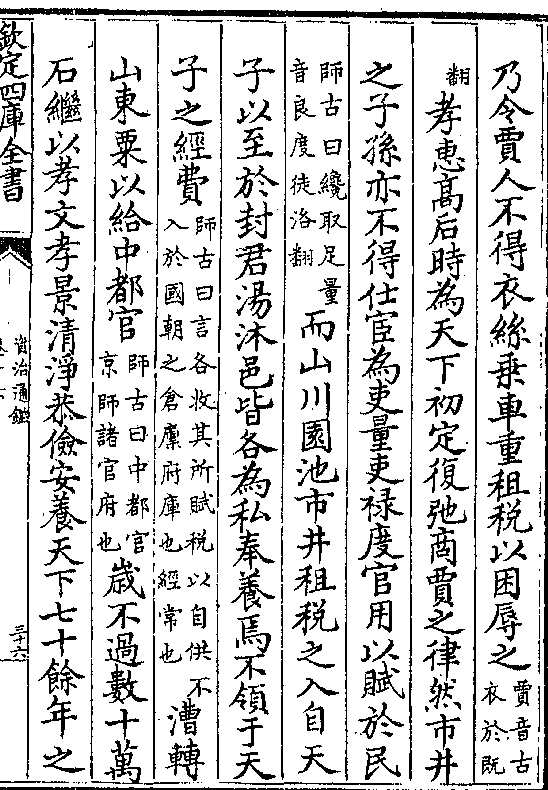 乃令賈人不得衣絲乗車重租税以困辱之賈音古衣於既
翻孝惠髙后時為天下初定復弛商賈之律然市井
之子孫亦不得仕宦為吏量吏禄度官用以賦於民
師古曰纔取足量音良度徒洛翻而山川園池市井租税之入自天
子以至於封君湯沐邑皆各為私奉養焉不領于天
子之經費師古曰言各收其所賦税以自供不入於國朝之倉廩府庫也經常也漕轉
山東粟以給中都官師古曰中都官京師諸官府也歲不過數十萬
石繼以孝文孝景清淨恭儉安養天下七十餘年之
欽定四庫全書
資治通鑑
三十六